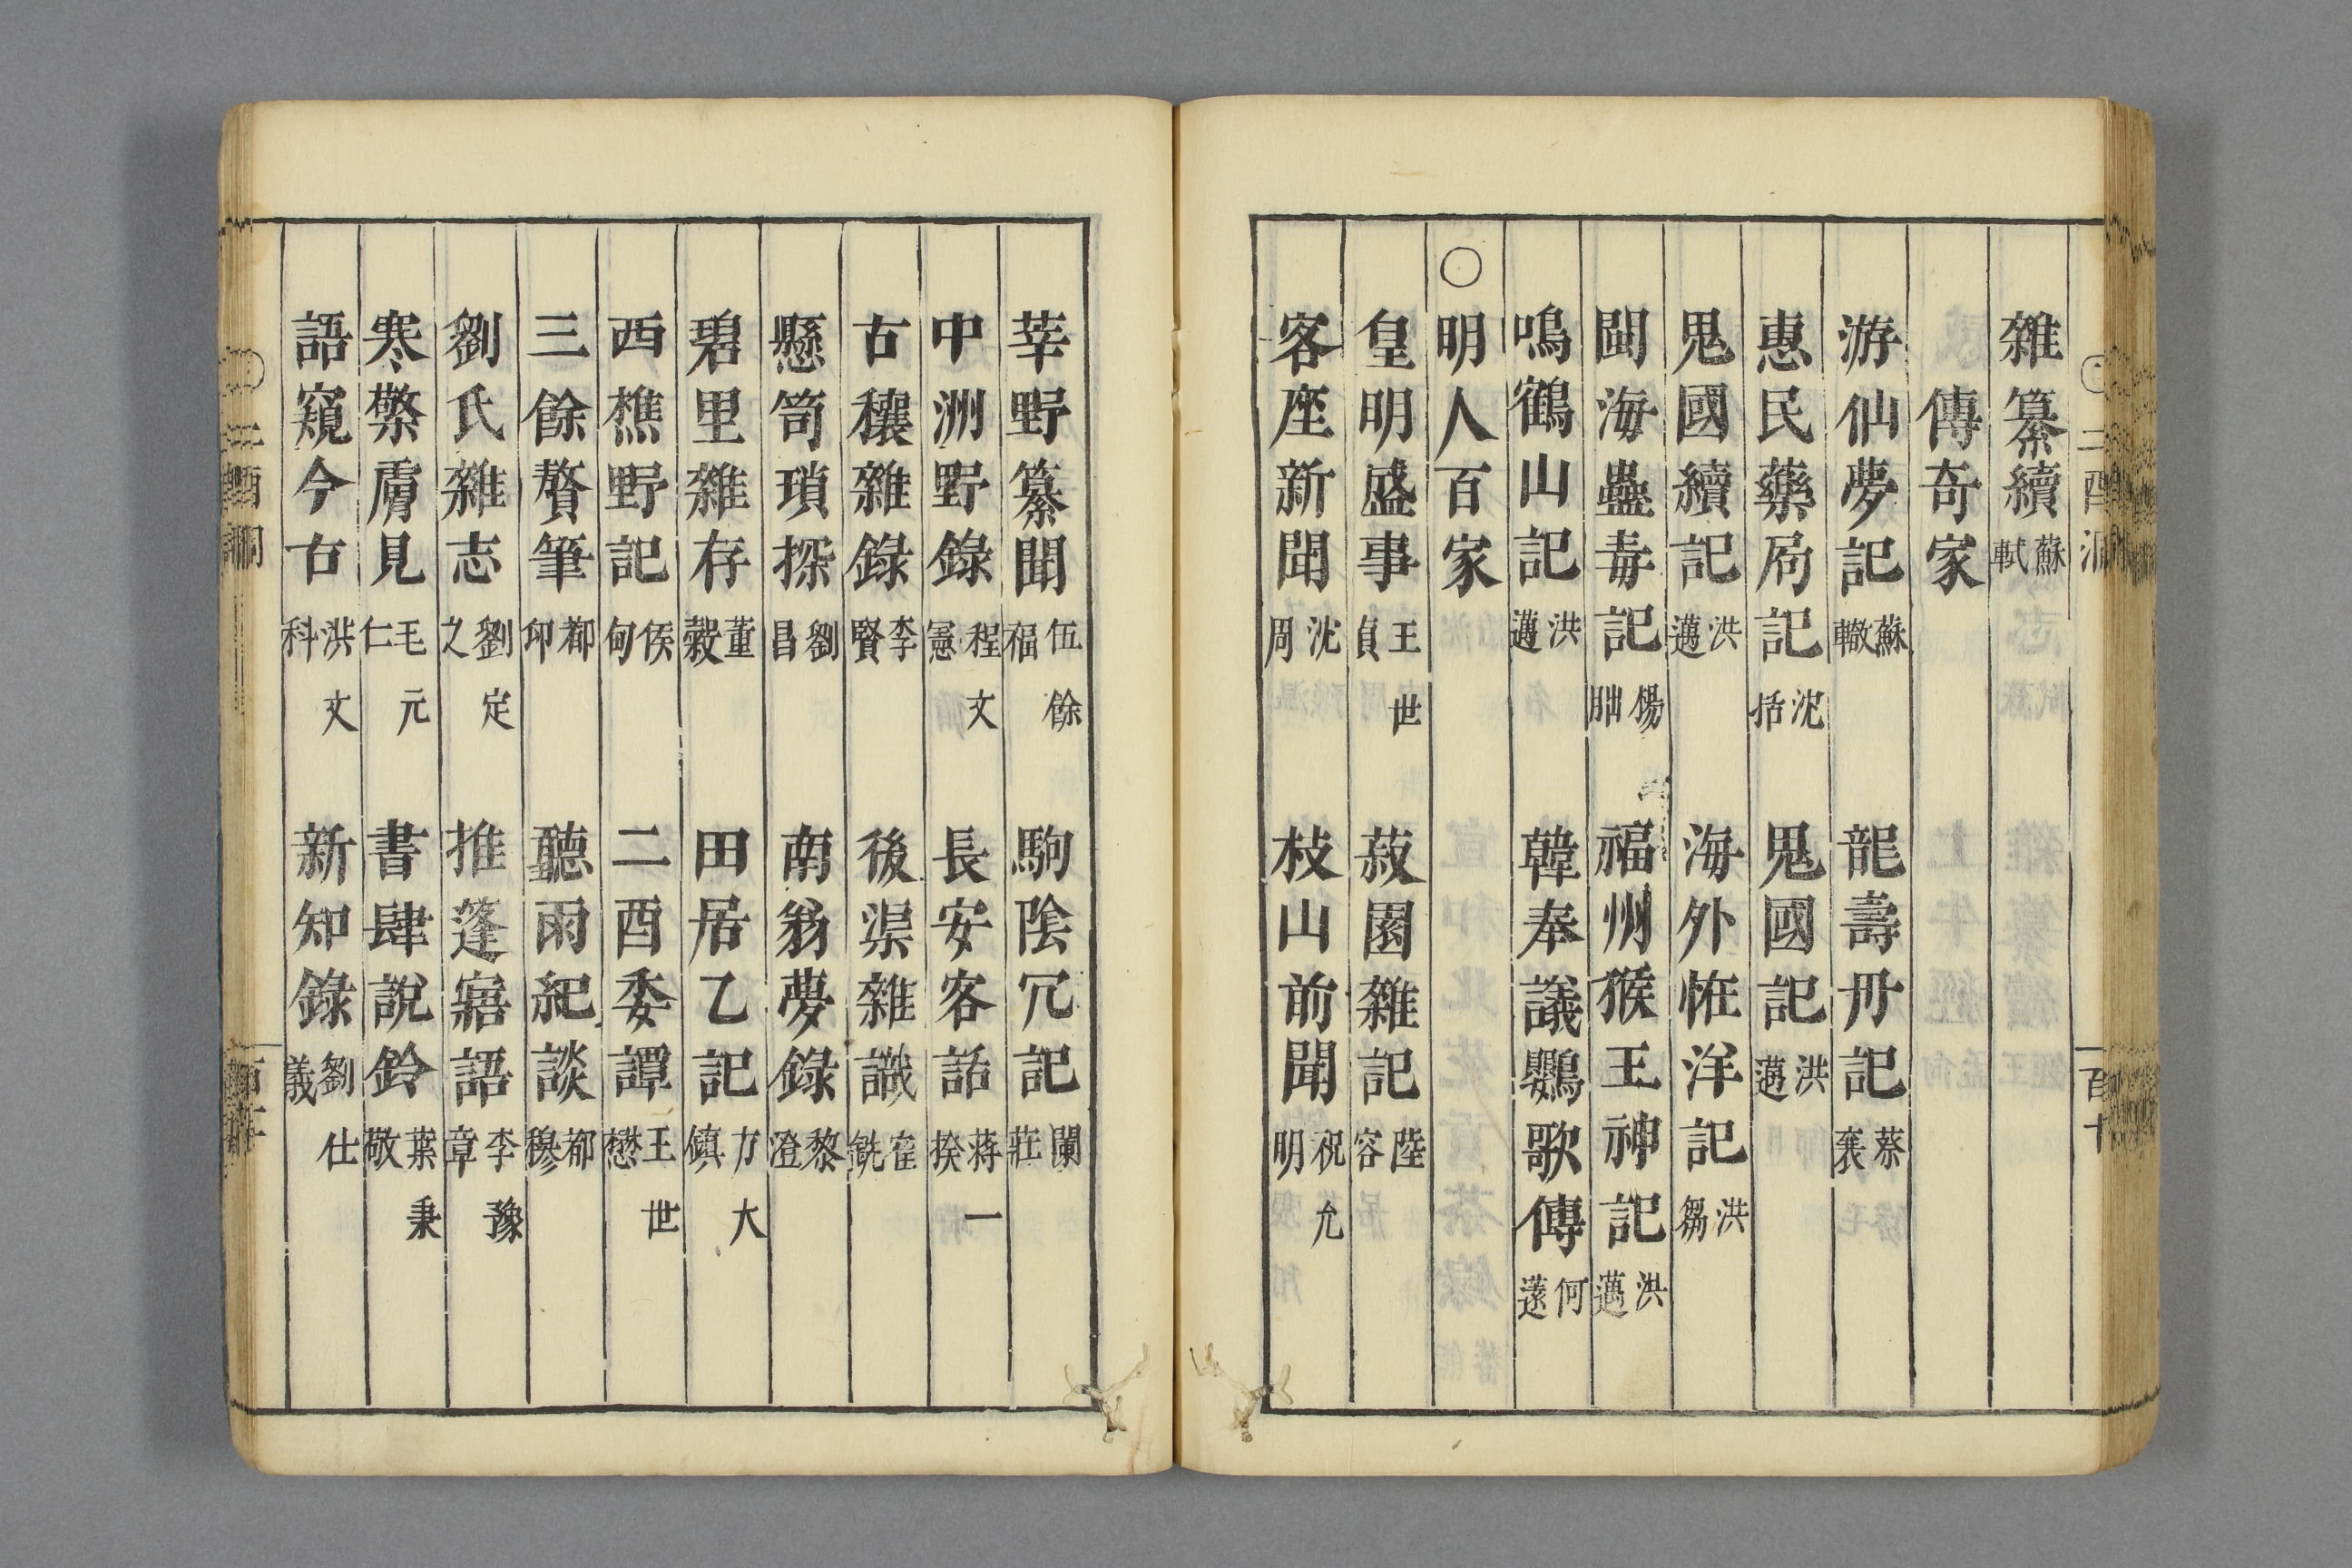 雜纂續蘇軾
傳奇家
游仙夢記蘇轍 龍壽丹記蔡襄
惠民藥局記沈括 鬼國記洪邁
鬼國續記洪邁 海外恠洋記洪芻
閩海蠱毒記楊朏 福州猴王神記洪邁
鳴鶴山記洪邁 韓奉議鸚歌傳何薳
○明人百家
皇明盛事王世貞 菽園雜記陸容
客座新聞沈周 枝山前聞祝允明
莘野纂聞伍餘福 駒陰冗記闌莊
中洲野錄程文憲 長安客話蔣一揆
古穰雜錄李賢 後渠雜識崔銑
懸笥瑣探劉昌 南翁夢錄黎澄
碧里雜存董榖 田居乙記方大鎮
西樵野記侯甸 二酉委譚王世懋
三餘贅筆都卬 聽雨紀談都穆
劉氏雜志劉定之 推蓬寤語李豫章
寒檠膚見毛元仁 書肆說鈴葉秉敬
語窺今古洪文科 新知錄劉仕義